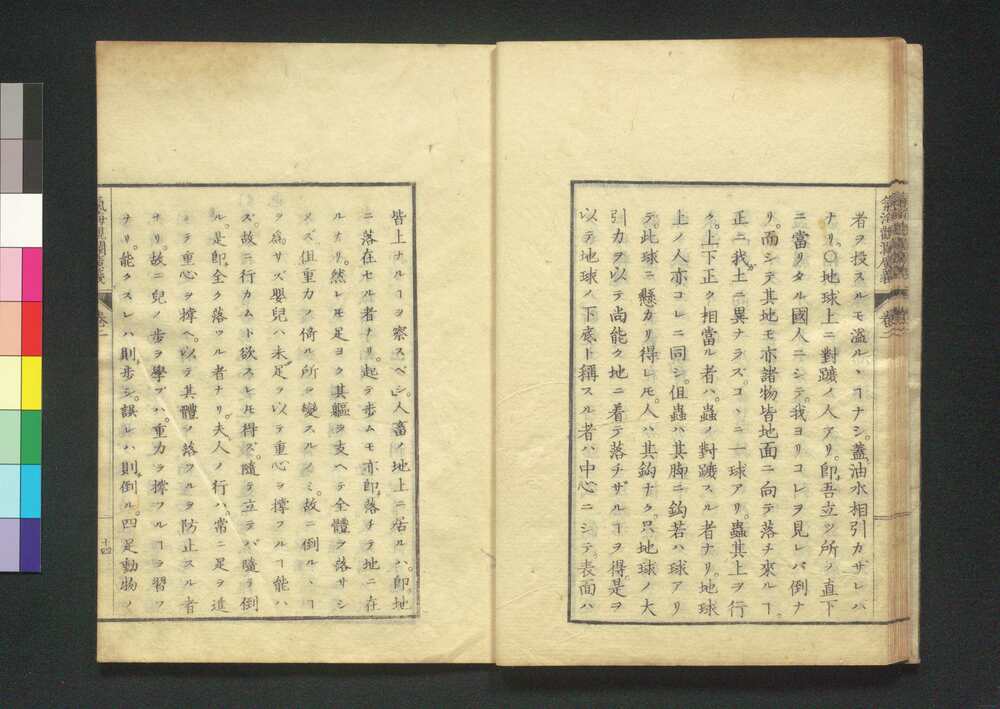 者ヲ投スルモ溢ルヽヿナシ。蓋油水相引カザレバ
ナリ。〇地球上ニ對蹠ノ人アリ。卽吾立ツ所ノ直下
ニ當リタル國人ニシテ。我ヨリコレヲ見レバ倒ナ
リ。而シテ其地モ亦諸物皆地面ニ向テ落チ來ルヿ
正ニ我土ニ異ナラズ。コヽニ一球アリ。蟲其上ヲ行
ク。上下正ク相當ル者ハ。蟲ノ對蹠スル者ナリ。地球
上ノ人亦コレニ同シ。但蟲ハ其脚ニ鈎若ハ球アリ
テ。此球ニ懸カリ得レモ。人ハ其鈎ナク。只地球ノ大
引力ヲ以テ尚能ク地ニ着テ落チザルヿヲ得。是ヲ
以テ地球ノ下底ト稱スル者ハ中心ニシテ。表面ハ
皆上ナルヿヲ察スベシ。人畜ノ地上ニ居ルハ。卽地
ニ落在セル者ナリ。起テ歩ムモ亦卽落チテ地ニ在
ルナリ。然レモ足ヨク其軀ヲ支ヘテ全體ヲ落サシ
メズ。但重力ノ倚ル所ヲ變スルノミ。故ニ倒ルヽヿ
ヲ爲サズ。嬰兒ハ未足ヲ以テ重心ヲ撐フルヿ能ハ
ズ。故ニ行カムト欲スレモ得ズ。隨テ立テバ隨テ倒
ル。是卽全ク落ツル者ナリ。夫人ノ行ハ。常ニ足ヲ進
テ重心ヲ撐ヘ。以テ其體ノ落ツルヲ防止スル者
ナリ。故ニ兒ノ歩ヲ學ブハ。重力ヲ撐フルヿヲ習フ
ナリ。能クスレハ則歩シ。誤レハ則倒ル。四足動物ノ
氣海觀瀾廣義
卷二
十四